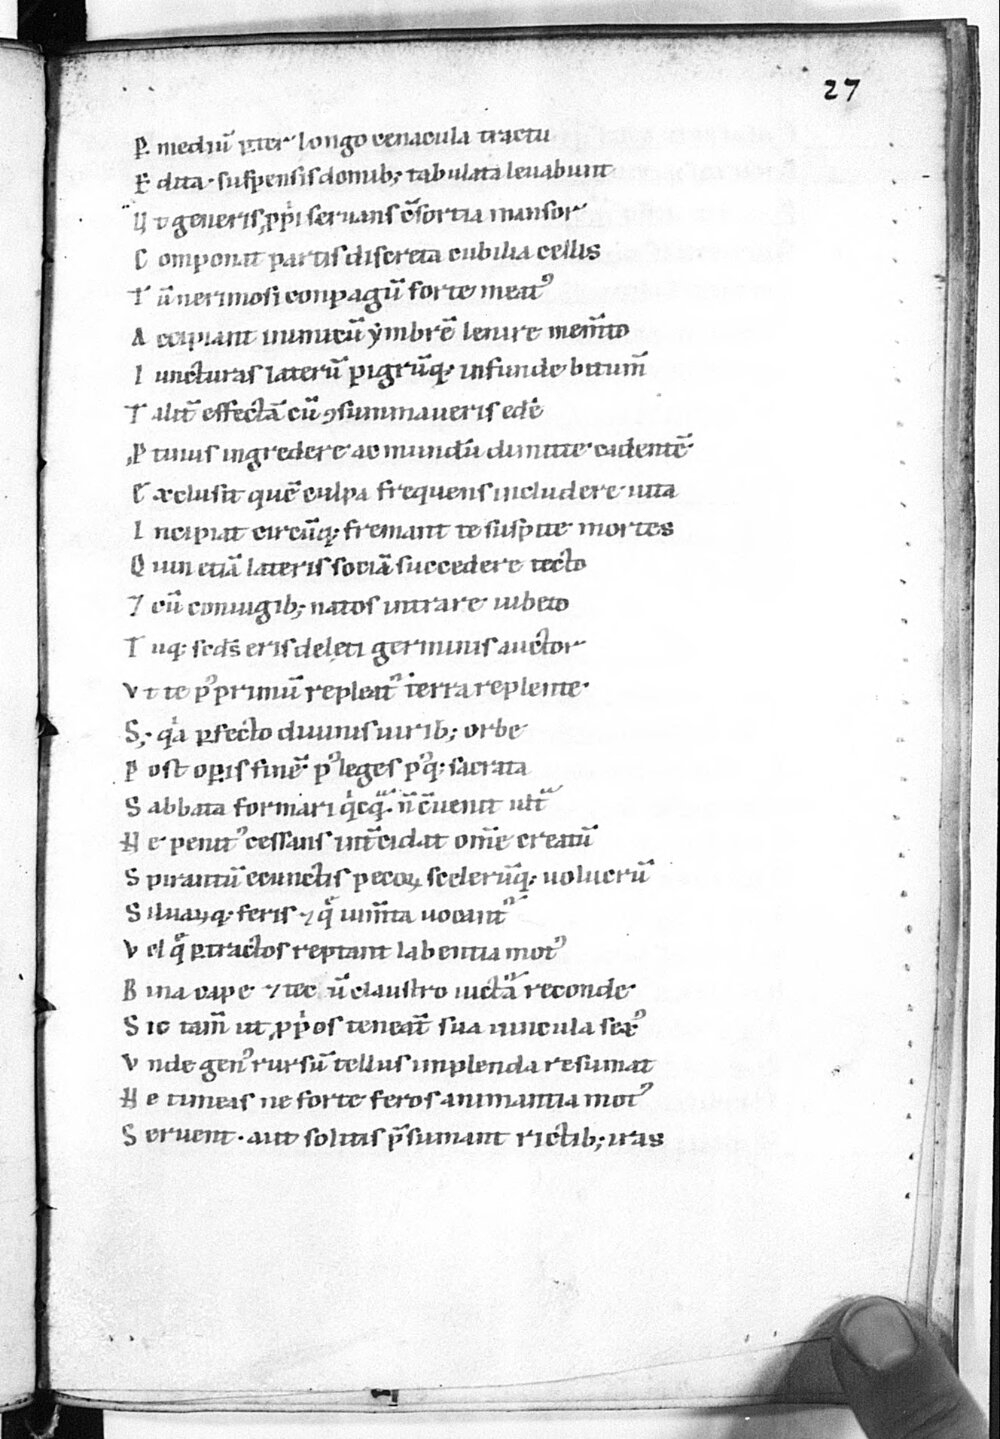 27
P̲ mediū p̲ter longo cenacula tractu
E dita · suspensis domib; tabulata levabunt
U t generis ꝓpͥ servans cōsortia mansor
C omponat partis discreta cubilia cellis
T ū ne rimosi conpagū forte meatꝰ
A ccipiant inimicū ẏmbrē lenire mem̄to
I uncturas laterū pigrūq; infunde bitum̄
T alit̄ effectā cū ꝯsummaveris edē
P tinus ingredere ac mundū dimitte cadentē
E xclusit quē culpa frequens includere vita
I ncipiat circūq; fremant te suspite mortes
Q uin etiā lateris sociā succedere tecto
⁊ cū coniugib; natos intrare iubeto
T uq; scd̄s eris deleti germinis auctor
V t te pꝰ primū repleat᷑ terra replente
S; · qͥa p̲fecto divinis virib; orbe
P ost op̲is finē pꝰ leges pꝰq; sacrata
S abbata formari qͥcqͣ n̄ cv̄enit ult̄
N e penitꝰ cessans int̄cidat om̄e creatū
S pirantū e cunctis pecoꝝ scelerūq; volucrū
S iluaꝝq; feris ⁊ q̨ͦ vim̄ta vocant᷑
V el q̨ͦ p̲ tractos reptant labentia motꝰ
B ina cape ⁊ tec ū claustro iuctā reconde
S ic tam̄ ut ꝓpͥos teneat̄ sua vincula sexꝰ
V nde genꝰ rursū tellus implenda resumat
N e timeas ne forte feros animantia motꝰ
S ervent · aut solitis p̄sumant rictib; iras